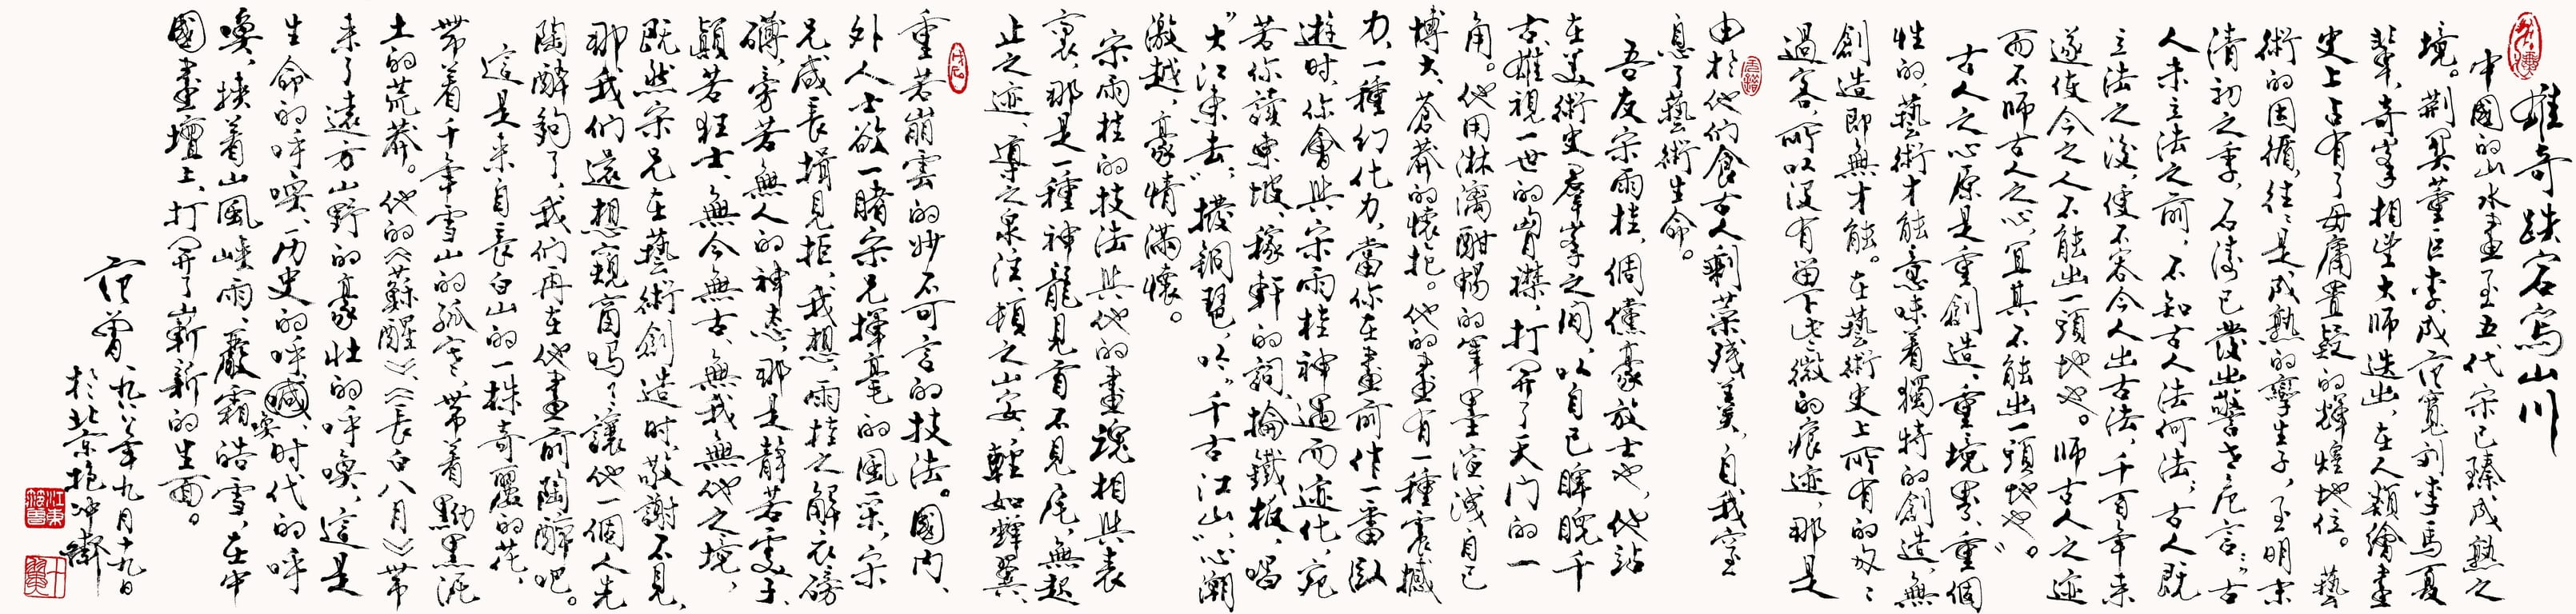 雄奇跌宕寫山川
中國的山水畫至五代宋已臻成熟之
境。荆關董巨李成范寬刘李馬夏
輩,奇峯相望大師迭出,在人類繪畫
史上占有了毋庸置疑的輝煌地位。藝
術的因循,往往是成熟的孿生子,至明末
清初之季,石濤已發出警世危言:“古
人未立法之前,不知古人法何法;古人既
立法之後,便不容今人出古法,千百年来
遂使今之人不能出一頭地也。師古人之迹
而不師古人之心,宜其不能出一頭地也。”
古人之心原是重創造,重境界,重個
性的,藝術才能意味着獨特的創造,無
創造即無才能。在藝術史上所有的匆匆
過客,所以没有留下些微的痕迹,那是
由於他們食古人剩菜殘羹,自我窒
息了藝術生命。
吾友宗雨桂,倜儻豪放士也,他站
在美術史羣峯之間,以自己睥睨千
古、雄視一世的胷襟,打開了天门的一
角。他用淋漓酣暢的筆墨渲洩自己
博大、蒼莽的懷抱。他的畫有一種震撼
力,一種幻化力,當你在畫前作一番臥
遊时,你會與宗雨桂神遇而迹化,宛
若你讀東坡、稼軒的詞,掄鐵板,唱
“大江東去”,撥銅琶,吟“千古江山”,心潮
激越,豪情滿懷。
宗雨桂的技法與他的畫魂相與表
裏,那是一種神龍見首不見尾,無起
止之迹,導之泉注,頓之山安,輕如蟬翼,
重若崩雲的妙不可言的技法。國内、
外人士欲一睹宗兄揮毫的風采,宗
兄咸長揖見拒,我想,雨桂之解衣磅
礴,旁若無人的神态,那是静若處子、
顛若狂士、無今無古、無我無他之境,
既然宗兄在藝術創造时,敬謝不見,
那我們還想窺窗嗎?讓他一個人先
陶醉夠了,我們再在他畫前陶醉吧。
這是来自長白山的一株奇麗的花,
帶着千年雪山的孤寒、帶着黝黑泥
土的荒莽。他的《蘇醒》、《長白八月》帶
来了遠方山野的豪壯的呼喚,這是
生命的呼喚、历史的呼喊、时代的呼
喚
喚,挾着山風峽雨、嚴霜皓雪,在中
國畫壇上,打開了嶄新的生面。
范曾
一九八八年九月十九日
於北京抱冲齋